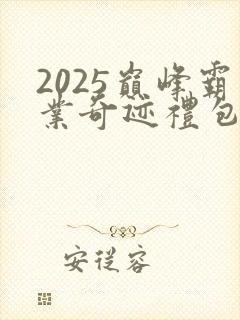 2025巅峰霸
業奇迹禮包
安從容